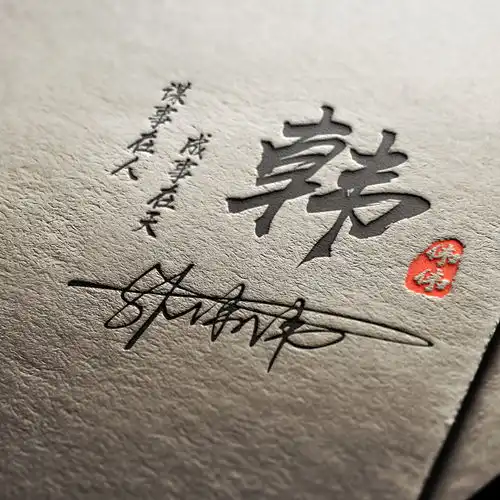 谋事在人
成事在天
韩